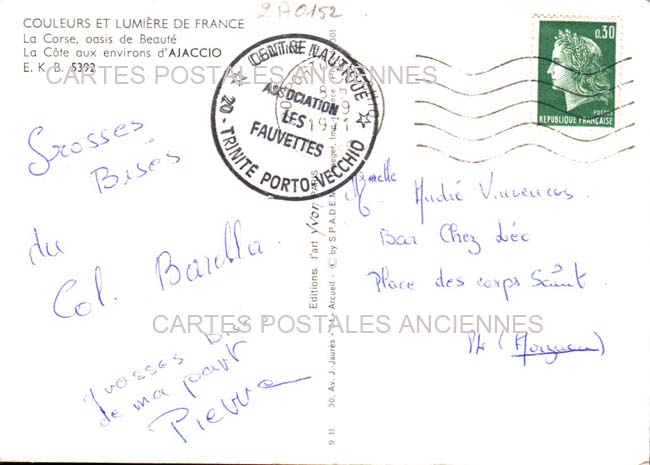 2A0152
COULEURS ET LUMIÈRE DE FRANCE
La Corse, oasis de Beauté
La Côte aux environs d'AJACCIO
E. K. B. 5392
CARTES POSTALES ANCIENNES
CENTRE NAUTIQUE
ASSOCIATION
LES
FAUVETTES
20 - TRINITE PORTO-VECCHIO
8 - 9
1971
0,30
POSTES
REPUBLIQUE FRANÇAISE
Grosses
Bises
du
Col. Barella
grosses Bises
de ma part
Pierre
Editions d'art Yvon PARIS
30, Av. J.-Jaurès - 94 - Arcueil - © by S.P.A.D.E.M.
9 11
André
Bar Chez Léo
Place des corps Saint
CARTES POSTALES ANCIENNES